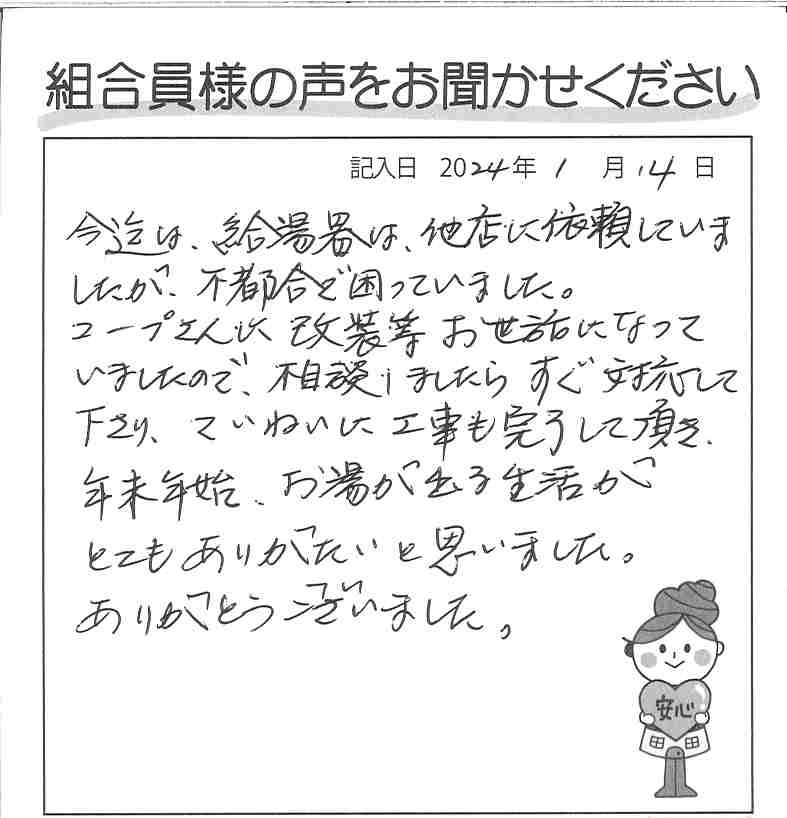 組合員様の声をお聞かせください
記入日 2024年 1 月 14 日
今迄は、給湯器は、他店に依頼していま
したが、不都合で困っていました。
コープさんに 改装等 お世話になって
いましたので、相談しましたら すぐ 対応して
下さり、ていねいに 工事も完了して頂き、
年末年始、お湯が出る生活が
とてもありがたいと思いました。
ありがとうございました。
安心